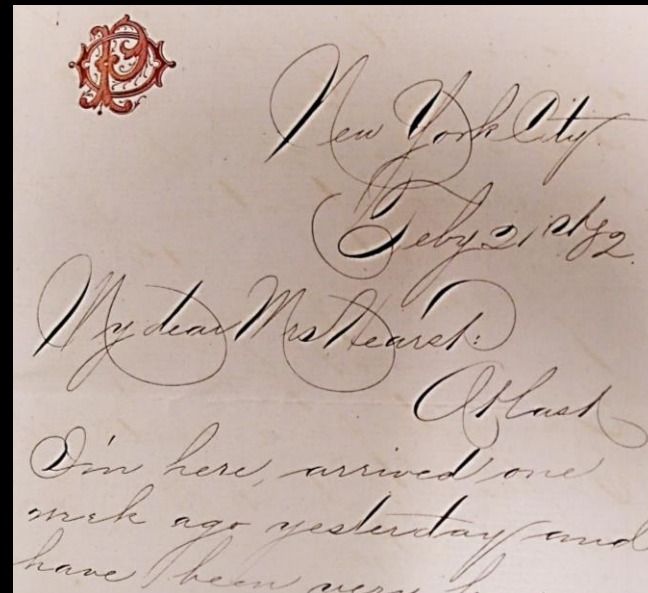 New York City
Feby 21st 82.
My dear Mrs Hearst:
At last
I'm here, arrived one
week ago yesterday and
have been very